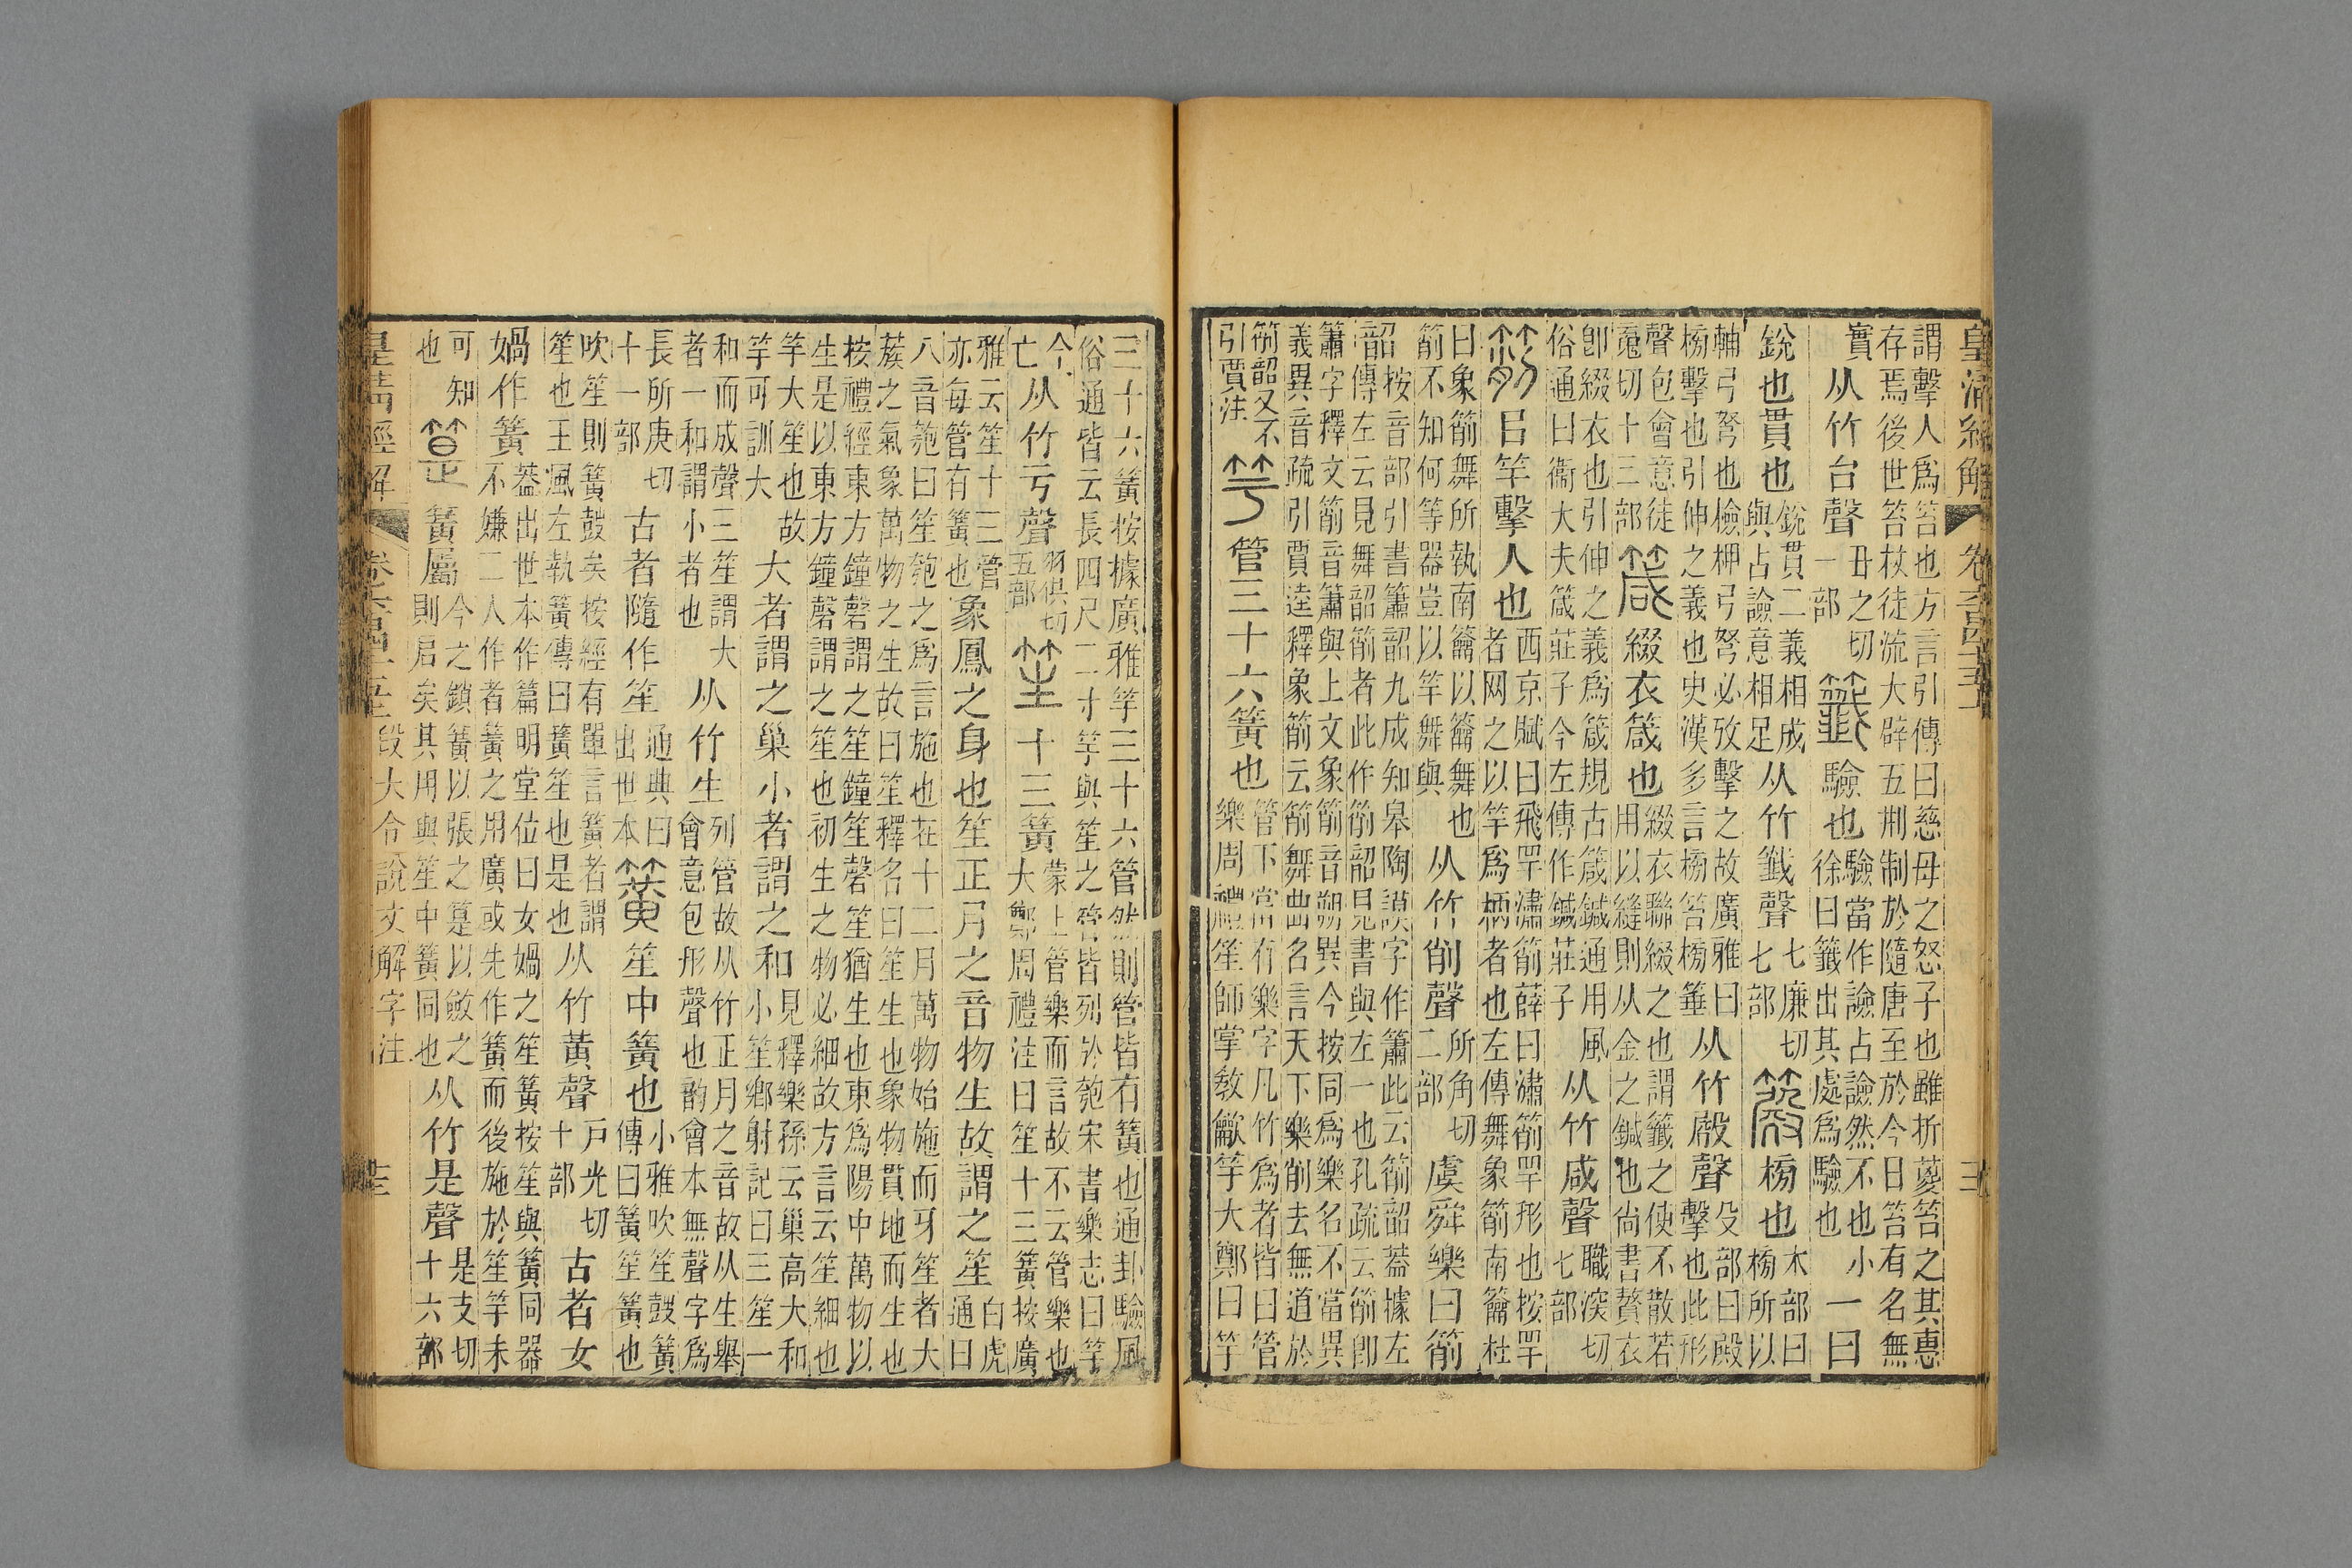 皇清經解 卷六百四十五 三
謂擊人爲笞也方言引傳曰慈母之怒子也雖折葼笞之其惠
存焉後世笞杖徒流大辟五荆制於隨唐至於今日笞有名無
實 从竹台聲 丑之切一部 籤 驗也 驗當作譣占譣然不也小徐曰籤出其處爲驗也 一曰
銳也貫也 銳貫二義相成與占譣意相足 从竹韱聲 七廉切七部 榜也 木部曰榜所以
輔弓弩也檢柙弓弩必攷擊之故廣雅曰榜擊也引伸之義也史漢多言榜笞榜箠 从竹殿聲 殳部曰殿擊也此形
聲包會意徒䰟切十三部 箴 綴衣箴也 綴衣聯綴之也謂籤之使不散若用以縫則从金之鍼也尙書贅衣
卽綴衣也引伸之義爲箴規古箴鍼通用風俗通曰衞大夫箴莊子今左傳作鍼莊子 从竹咸聲 職深切七部
箾 㠯竿擊人也 西京賦曰飛罕潚箾薛曰潚箾罕形也按罕者网之以竿爲柄者也左傳舞象箾南籥杜
曰象箾舞所執南籥以籥舞也箾不知何等器豈以竿舞與 从竹削聲 所角切二部 虞舜樂曰箾
韶 按音部引書簫韶九成知皋陶謨字作簫此云箾韶葢據左傳左云見舞韶箾者此作箾韶見書與左一也孔疏云箾卽
簫字釋文箾音簫與上文象箾音朔異今按同爲樂名不當異
義異音疏引賈逵釋象箾云箾舞曲名言天下樂削去無道於
箾韶又不引賈注 竽 管三十六簧也 管下當有樂字凡竹爲者皆曰管樂周禮笙師掌敎龡竽大鄭曰竽
三十六簧按據廣雅竽三十六管然則管皆有簧也通卦驗風
俗通皆云長四尺二寸竽與笙之管皆列於匏宋書樂志曰竽
今亡 从竹亏聲 羽俱切五部 笙 十三簧 蒙上管樂而言故不云管樂也大鄭周禮注曰笙十三簧按廣
雅云笙十三管亦每管有簧也 象鳳之身也笙正月之音物生故謂之笙 白虎通曰
八音匏曰笙匏之爲言施也在十二月萬物始施而牙笙者大
蔟之氣象萬物之生故曰笙釋名曰笙生也象物貫地而生也
按禮經東方鐘磬謂之笙鐘笙磬笙猶生也東爲陽中萬物以
生是以東方鐘磬謂之笙也初生之物必細故方言云笙細也
竽大笙也故竽可訓大 大者謂之巢小者謂之和 見釋樂孫云巢高大和小笙鄉射記曰三笙一
和而成聲三笙謂大者一和謂小者也 从竹生 列管故从竹正月之音故从生舉會意包形聲也韵會本無聲字爲
長所庚切十一部 古者隨作笙 通典曰出世本 簧 笙中簧也 小雅吹笙鼓簧傳曰簧笙簧也
吹笙則簧鼓矣按經有單言簧者謂笙也王風左執簧傳曰簧笙也是也 从竹黃聲 戶光切十部 古者女
媧作簧 葢出世本作篇明堂位曰女媧之笙簧按笙與簧同器不嫌二人作者簧之用廣或先作簧而後施於笙竽未
可知也 䈕 簧屬 今之鎖簧以張之䈕以斂之則启矣其用與笙中簧同也 从竹是聲 是支切十六部
皇清經解 卷六百四十五 段大令說文解字注 三